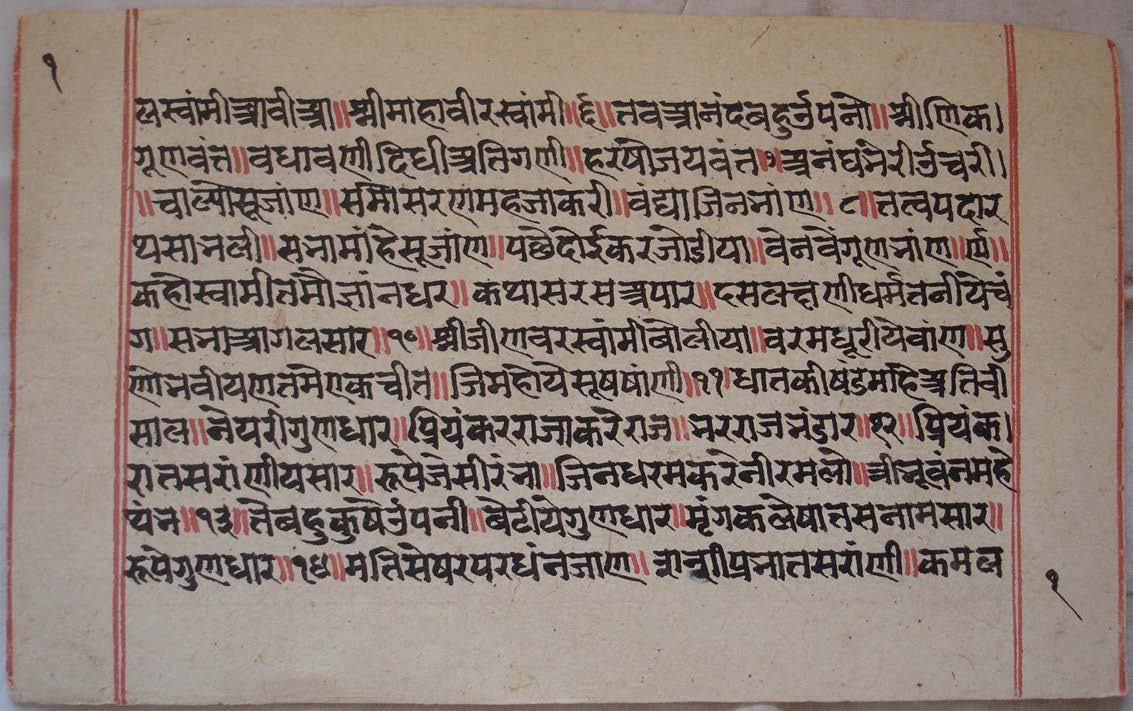 १
लस्वांमीआवीआ॥श्रीमाहावीरस्वांमी॥६॥तवआनंदबहुर्उपनो॥श्रीणिक।
गूणवंत॥वधावणीदिधीअतिगणी॥हरषोजयवंत॥७अनंघनेरीर्उचरी।
॥चाल्योसूजांण॥समोसरणमहजाकरी॥वंद्याजिननांण॥८॥तत्वपदार
थसानली॥सनामांहेसूजांण॥पछैदोईकरजोडीया॥वेनवेंगूणनांण॥९॥
कहोस्वामीतमोज्ञांनधर॥कथासरसअपार॥दसलक्षणीधर्मतनीयेचं
ग॥सनाआगलसार॥१०॥श्रीजीणवरस्वांमीबोलीया॥वरमधूरीयेवांण॥सु
णोनवीयणतमेएकचीते॥जिमहोयेसूषषांणी॥११॥धातकीषंडमांहेअतिवी
साल॥नेयरीगुणधार॥प्रियंकरराजाकरेराज॥नरराजनंडार॥१२॥प्रियंक।
रातसरांणीयसार॥रूपेजेसीरंना॥जिनधरमकरेनीरमलो॥त्रीनूवंनमहे
यंन॥१३॥तेबहुकुषेर्उपनी॥बेटीयेगुणधार॥मृंगकलेषातसनामसार॥
रूपेगुणधार॥१४॥मतिसेषरपरधंनजाण॥ प्रनातसरांणी॥कमल
१